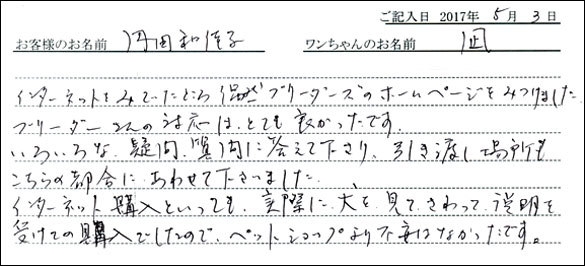 ご記入日 2017年 5月 3日
お客様のお名前 円田和佳子 ワンちゃんのお名前 凪
インターネットをみていたところ偶然ブリーダーズのホームページをみつけました
ブリーダーさんの対応は、とても良かったです。
いろいろな、疑問、質問に答えて下さり、引き渡し場所も
こちらの都合に、あわせて下さいました。
インターネット購入といっても、実際に、犬を、見て、さわって、説明を
受けての購入でしたので、ペットショップより不安はなかったです。